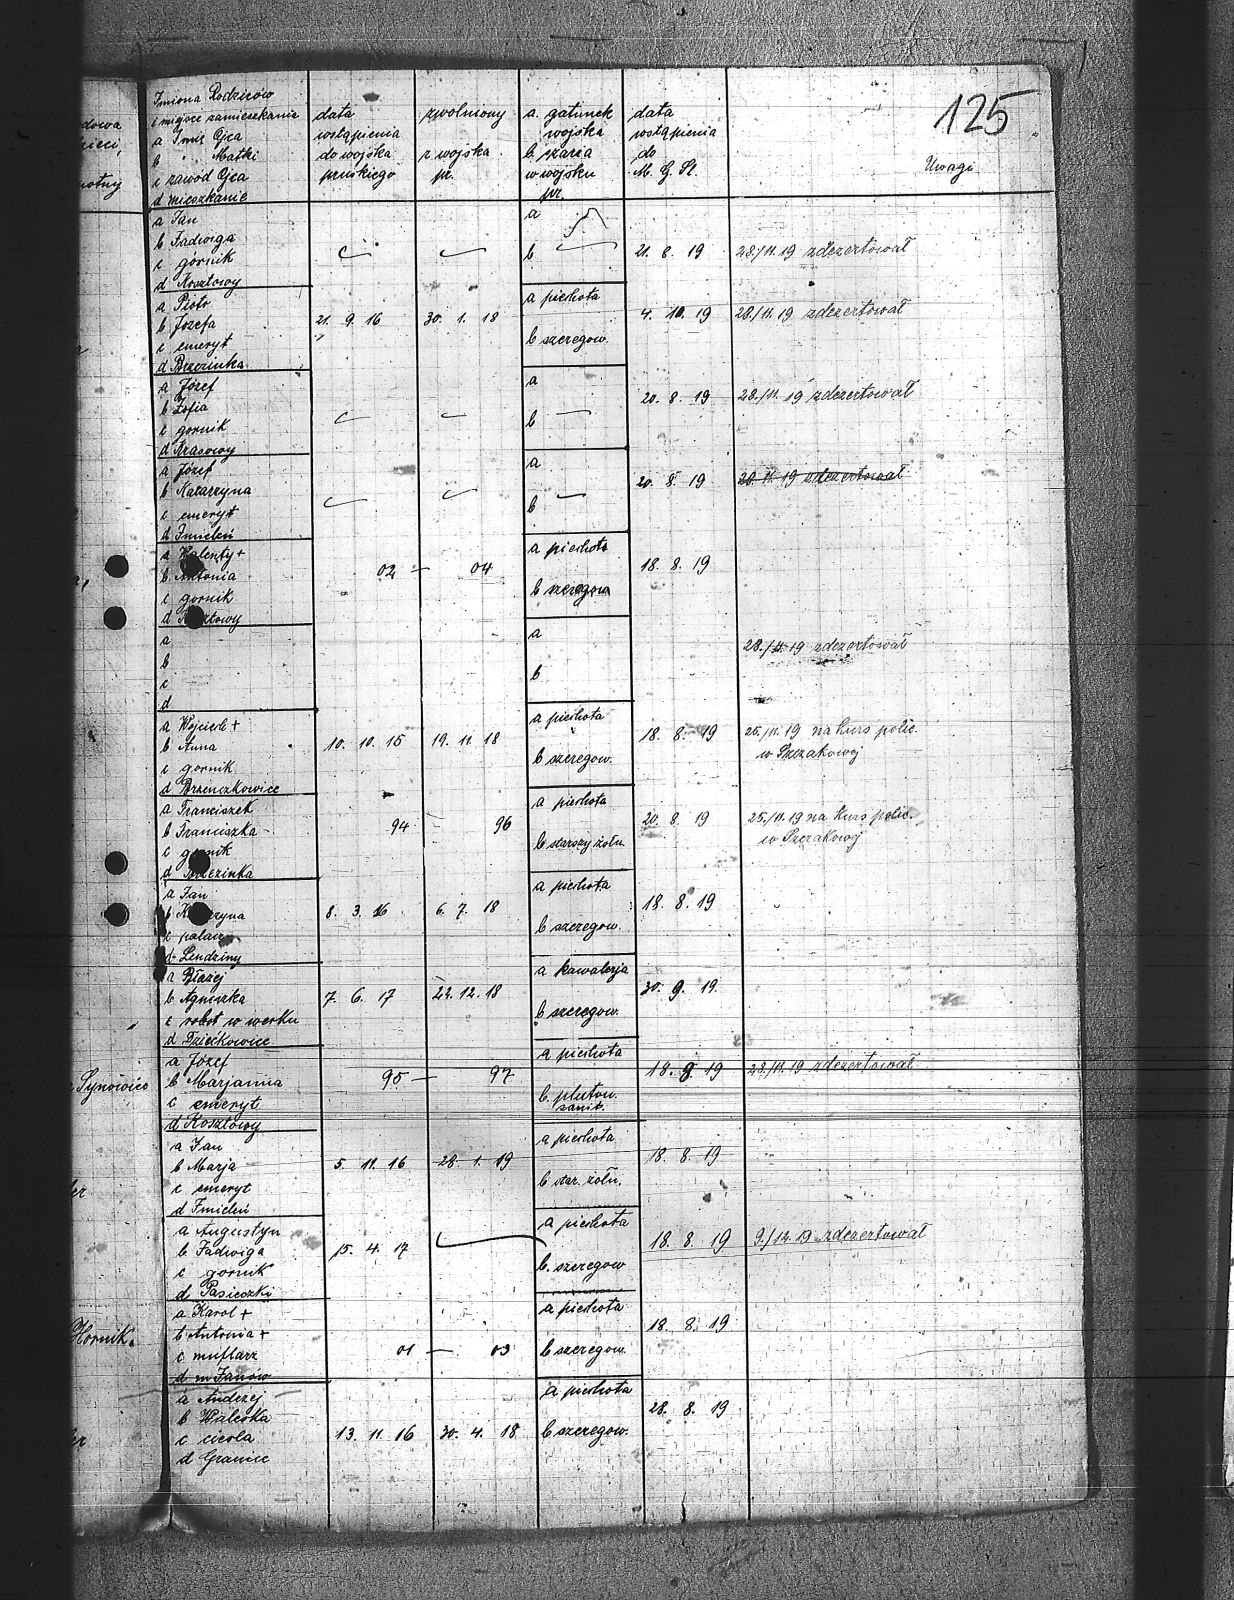 125
Imiona Rodziców
i miejsce zamieszkania
a Imię Ojca
b " Matki
c zawód Ojca
d mieszkanie
data
wstąpienia
do wojska
pruskiego
zwolniony
z wojska
pr.
a. gatunek
wojska
b. szarża
w wojsku
pr.
data
wstąpienia
do
M. G. Śl.
Uwagi
a Jan
b Jadwiga
c gornik
d Kosztowy
a
b
21. 8. 19
28./11. 19 zdezertował
a Piotr
b Józefa
c emeryt
d Brzezinka
21. 9. 16
30. 1. 18
a piechota
b szeregow.
4. 10. 19
28./11. 19 zdezertował
a Józef
b Zofia
c gornik
d Krasowy
a
b
20. 8. 19
28./11. 19 zdezertował
a Józef
b Katarzyna
c emeryt
d Imieleń
a
b
20. 8. 19
20. 11. 19 zdezertował
a Walenty +
b Antonia
c gornik
d Kosztowy
02 — 04
a piechota
b szeregow
18. 8. 19
a
b
c
d
a
b
28./11. 19 zdezertował
a Wojciech +
b Anna
c gornik
d Brzenczkowice
10. 10. 15
19. 11. 18
a piechota
b szeregow.
18. 8. 19
25./11. 19 na kurs polic.
w Szczakowej
a Franciszek
b Franciszka
c gornik
d Brzezinka
94 — 96
a piechota
b starszy żołn.
20. 8. 19
25./11. 19 na kurs polic.
w Szczakowej
a Jan
b Katarzyna
c palacz
d Lendziny
8. 3. 16
6. 7. 18
a piechota
b szeregow.
18. 8. 19
a Błażej
b Agnieszka
c robot w werku
d Dziećkowice
7. 6. 17
22. 12. 18
a kawalerja
b szeregow.
30. 9. 19.
Synowiec
a Józef
b Marjanna
c emeryt
d Kosztowy
95 — 97
a piechota
b. pluton.
sanit.
18. 8. 19
28/11. 19 zdezertował
a Jan
b Marja
c emeryt
d Imieleń
5. 11. 16
28. 1. 19
a piechota
b star. żołn.
18. 8. 19
a Augustyn
b Jadwiga
c gornik
d Pasieczki
15. 4. 17
a piechota
b. szeregow
18. 8. 19
9./12. 19 zdezertował
Hornik.
a Karol +
b Antonia +
c muflarz
d m Janów
01 — 03
a piechota
b szeregow.
18. 8. 19
a Andrzej
b Waleska
c cieśla
d Graniec
13. 11. 16
30. 4. 18
a piechota
b szeregow.
28. 8. 19